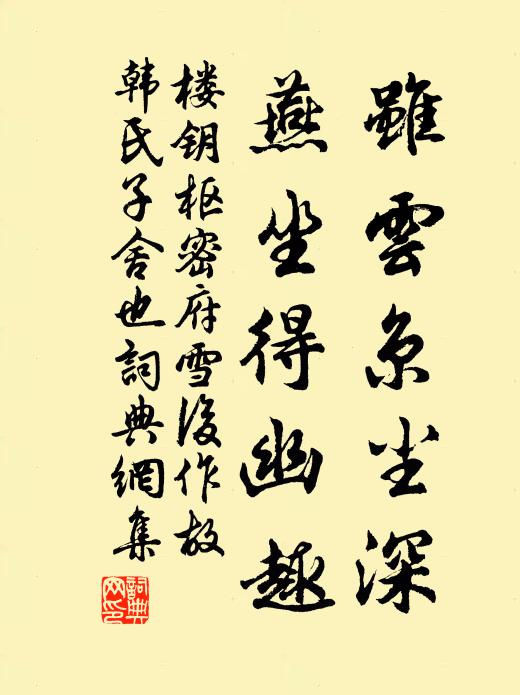 雖雲京尘深
燕坐得幽趣
楼钥枢密府雪後作故
韩氏子舍也詞典網集
詞典
网印